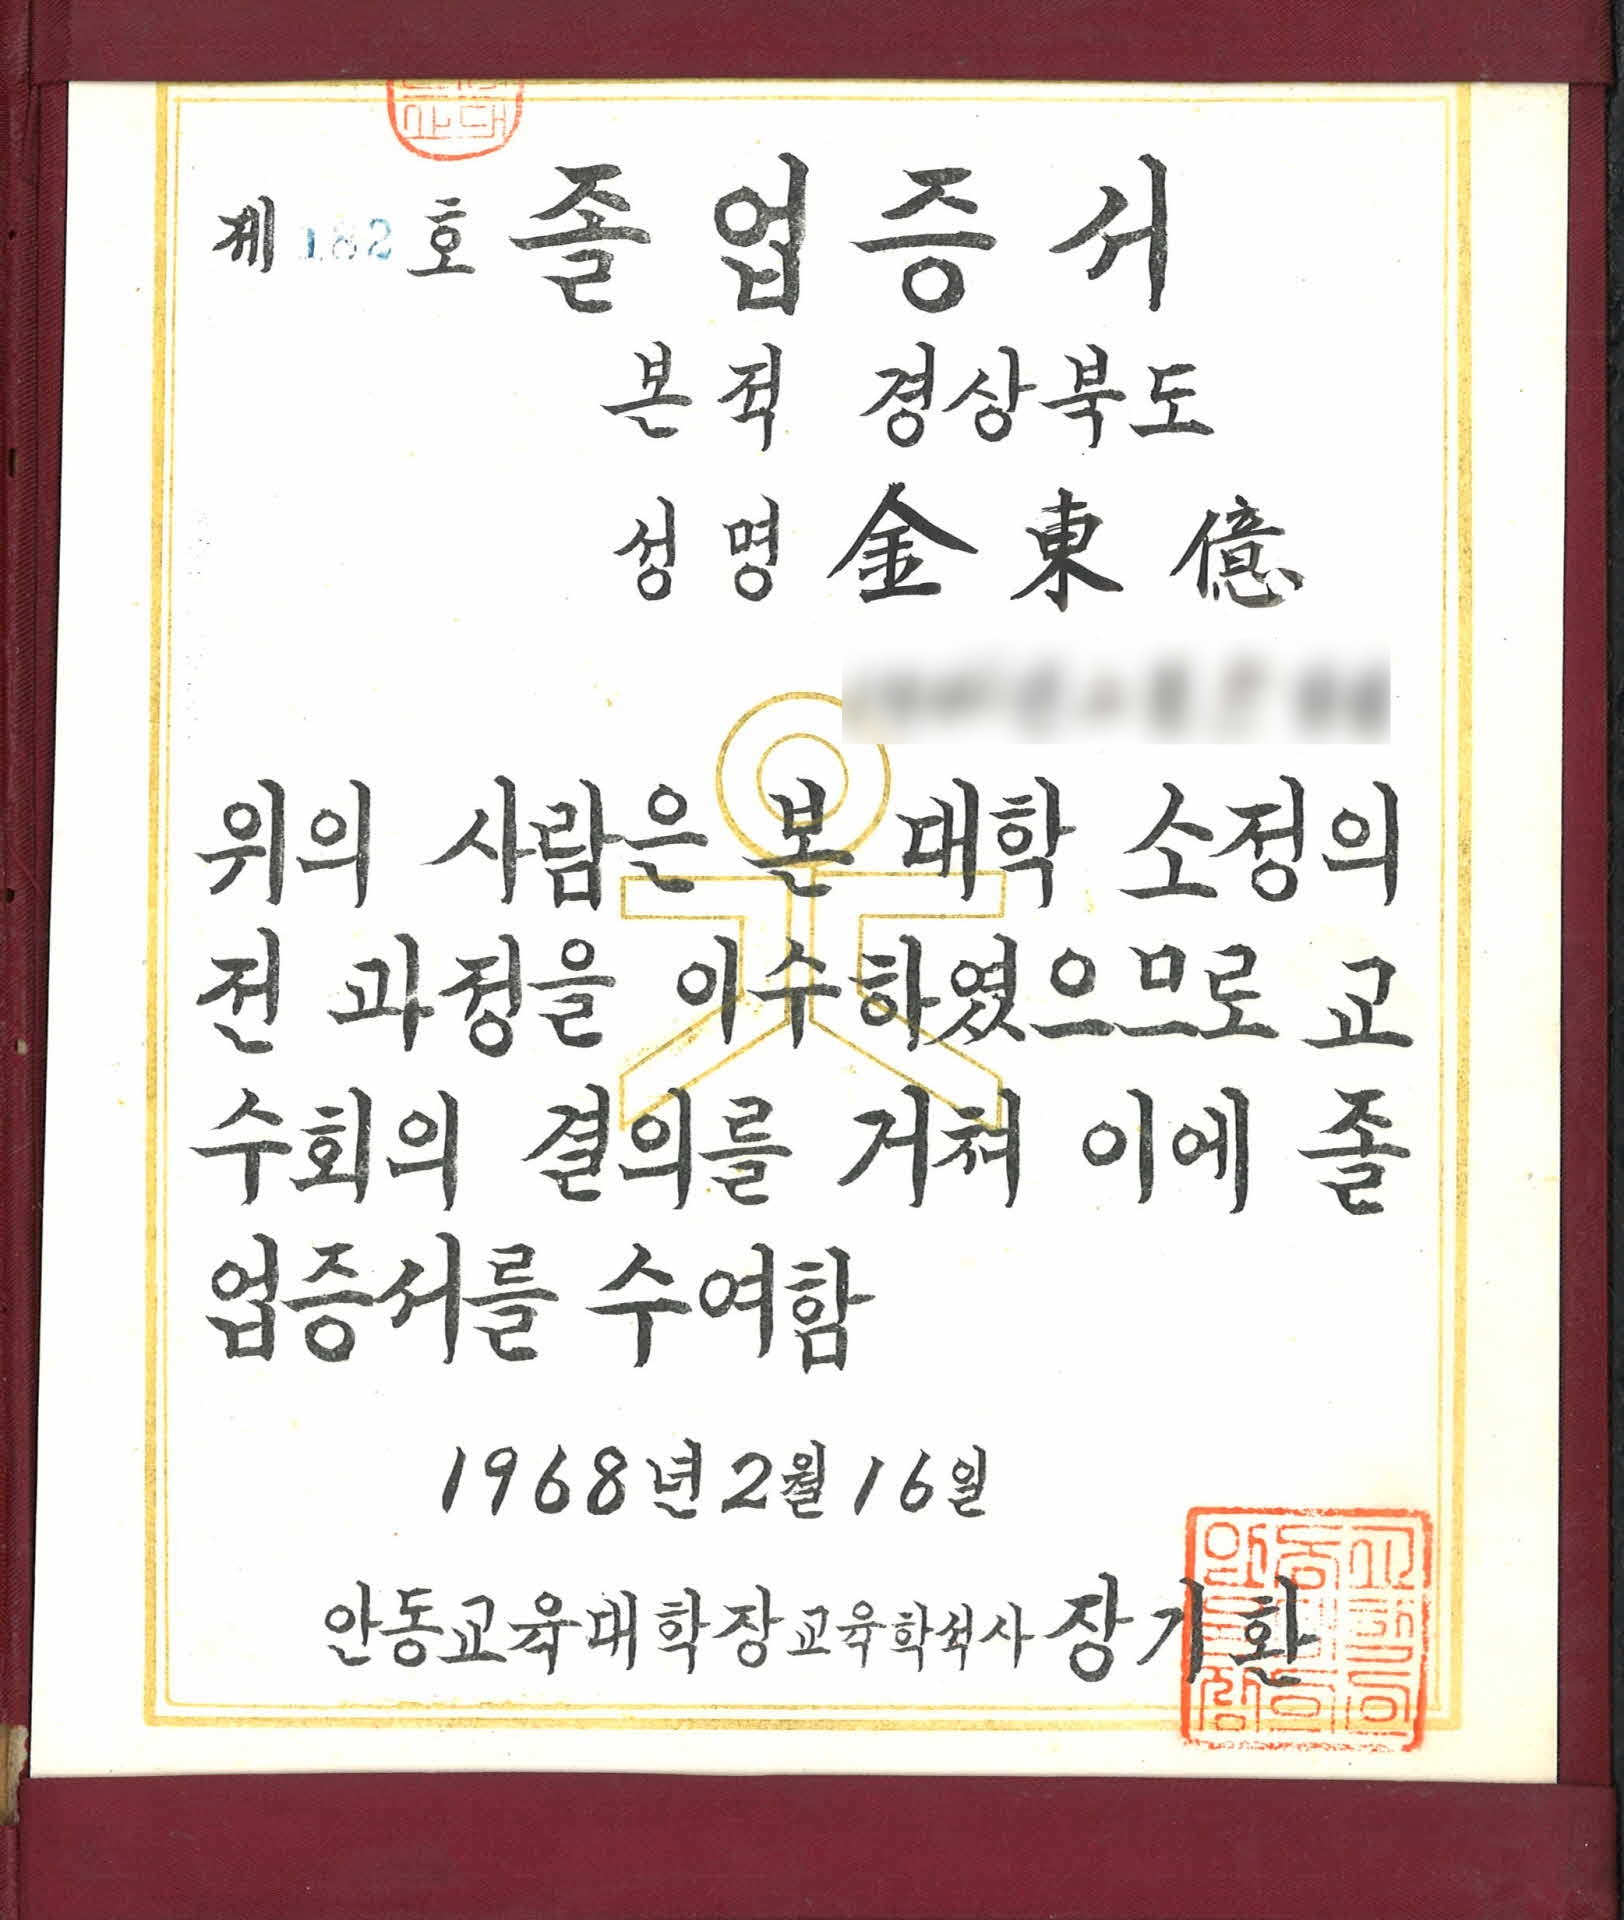 제 182 호 졸업증서
본적 경상북도
성명 金東億
위의 사람은 본 대학 소정의
전 과정을 이수하였으므로 교
수회의 결의를 거쳐 이에 졸
업증서를 수여함
1968년 2월 16일
안동교육대학장 교육학석사 장기환